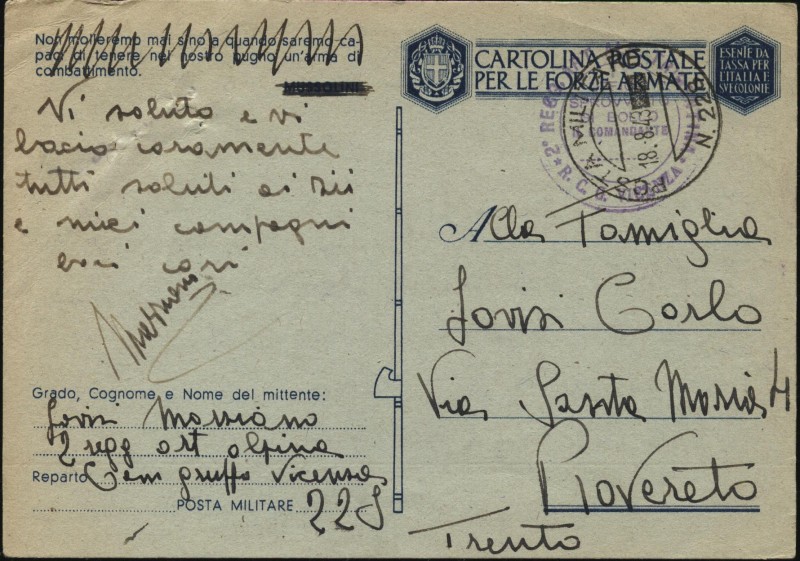 Non molleremo mai sino a quando saremo ca-
paci di tenere nel nostro pugno un'arma di
combattimento.
MUSSOLINI
Vi saluto e vi
bacio caramente
tutti saluti ai zii
e miei compagni
baci cari
Marziano
Grado, Cognome e Nome del mittente:
Marziano
2 regg art alpina
Reparto Com gruppo Vicenza
POSTA MILITARE 225
CARTOLINA POSTALE
PER LE FORZE ARMATE
ESENTE DA
TASSA PER
L'ITALIA E
SVE COLONIE
POSTA MILITARE N. 225
18.8.43
2° REGG
COMANDANTE
R. C. G. VICENZA
Alla Famiglia
Carlo
Via Santa Maria 4
Rovereto
Trento